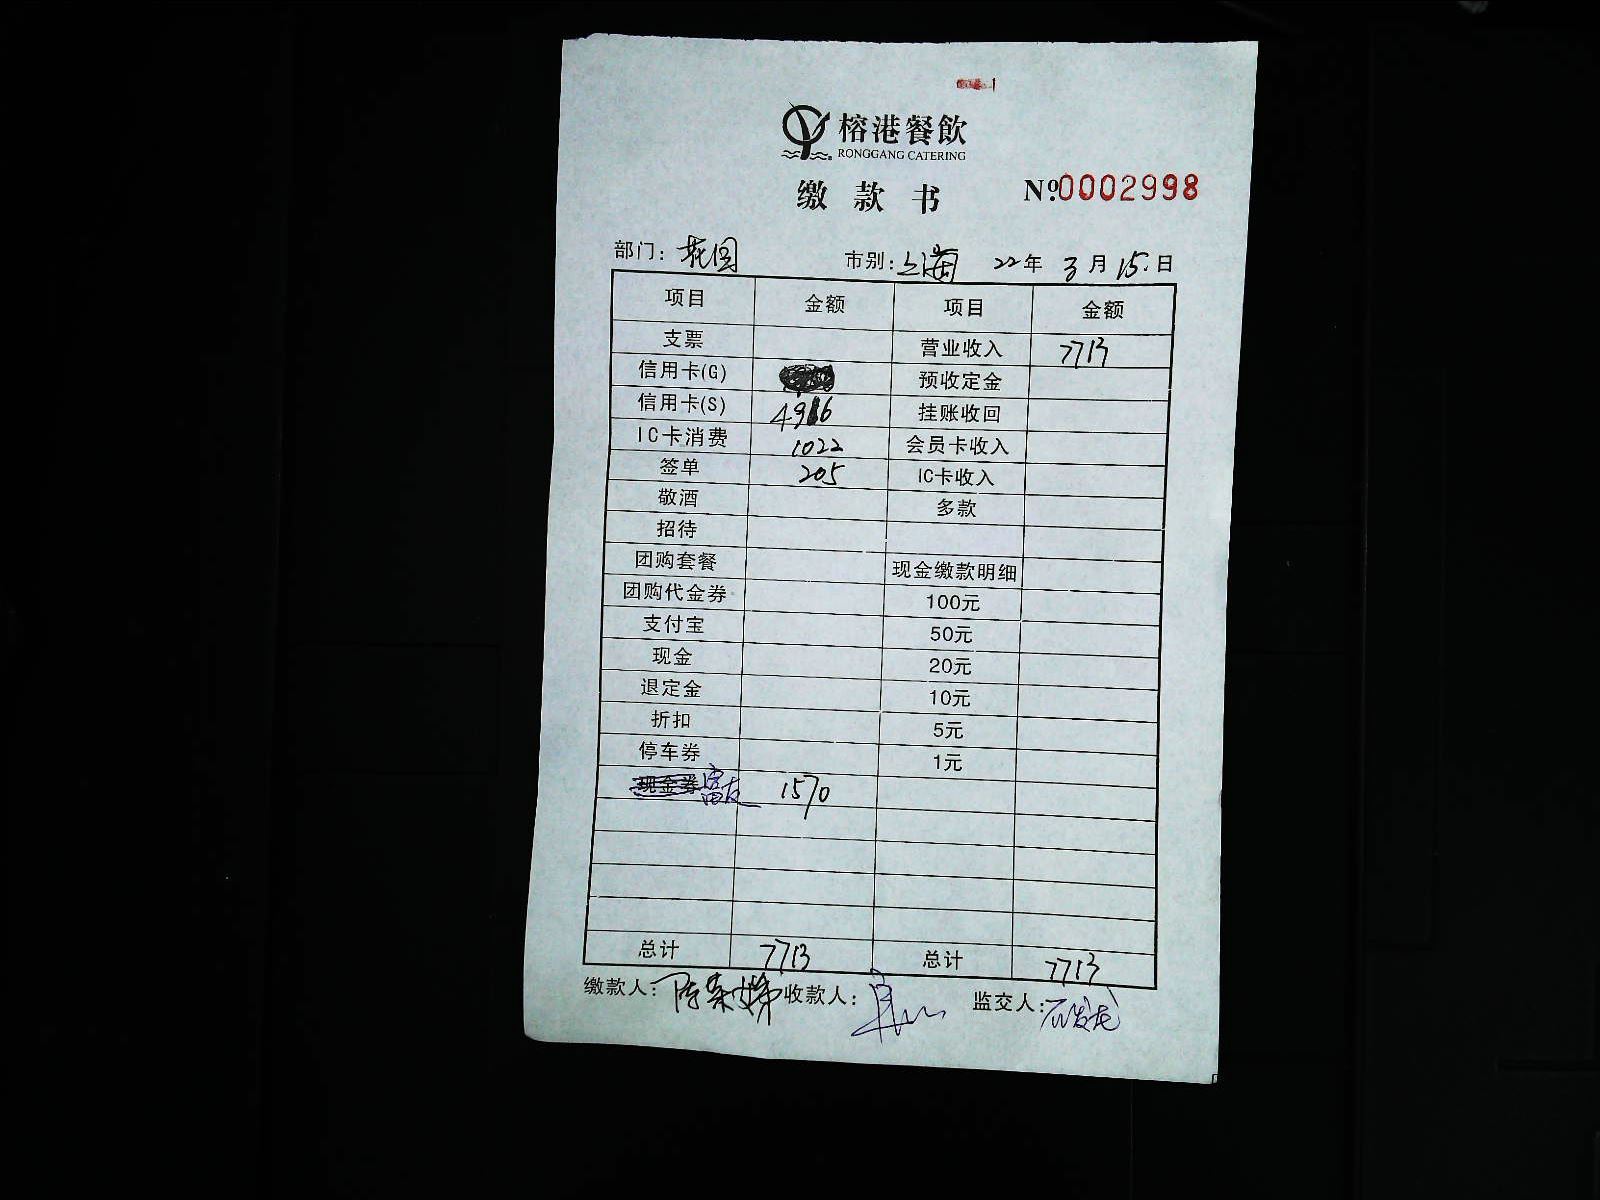 榕港餐飲
RONGGANG CATERING
缴款书 №0002998
部门: 花园 市别: 上海 22年 3月 15日
项目 金额 项目 金额
支票 营业收入 7713
信用卡(G) 预收定金
信用卡(S) 4916 挂账收回
IC卡消费 1022 会员卡收入
签单 205 IC卡收入
敬酒 多款
招待
团购套餐 现金缴款明细
团购代金券 100元
支付宝 50元
现金 20元
退定金 10元
折扣 5元
停车券 1元
现金券 富友 1570
总计 7713 总计 7713
缴款人: 陈荣娣 收款人: 监交人: 石发龙